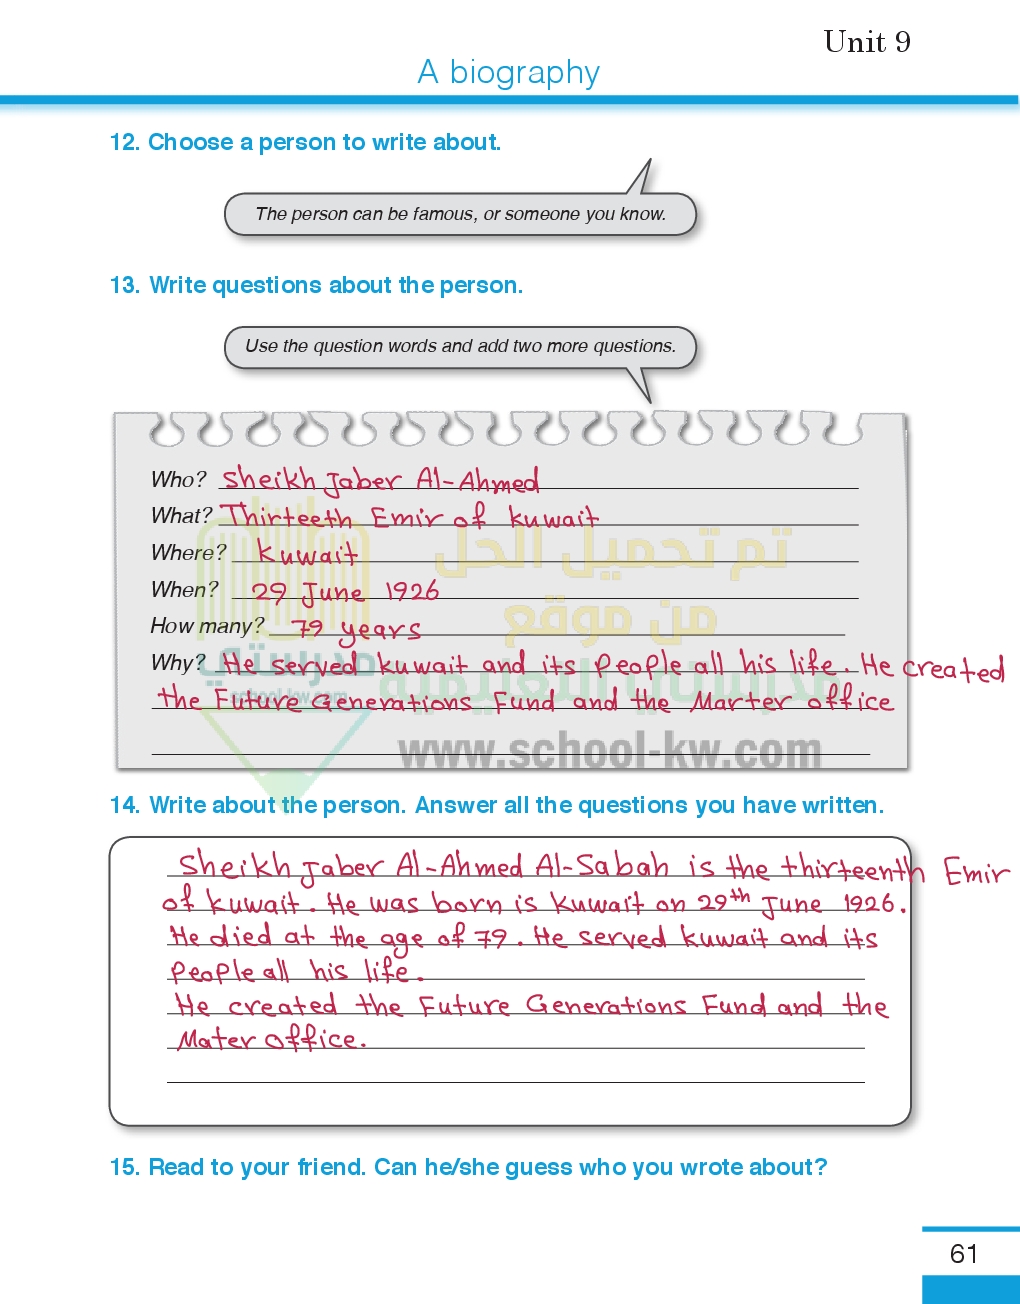 Unit 9
A biography
12. Choose a person to write about.
The person can be famous, or someone you know.
13. Write questions about the person.
Use the question words and add two more questions.
Who? Sheikh Jaber Al-Ahmed
What? Thirteeth Emir of Kuwait
Where? Kuwait
When? 29 June 1926
How many? 79 years
Why? He served Kuwait and its People all his life. He created
the Future Generations Fund and the Marter office
تم تحميل الحل
من موقع
مدرستي
school-kw.com
مدرستي التعليمية
www.school-kw.com
14. Write about the person. Answer all the questions you have written.
Sheikh Jaber Al-Ahmed Al-Sabah is the thirteenth Emir
of Kuwait. He was born is Kuwait on 29th June 1926.
He died at the age of 79. He served Kuwait and its
People all his life.
He created the Future Generations Fund and the
Mater office.
15. Read to your friend. Can he/she guess who you wrote about?
61